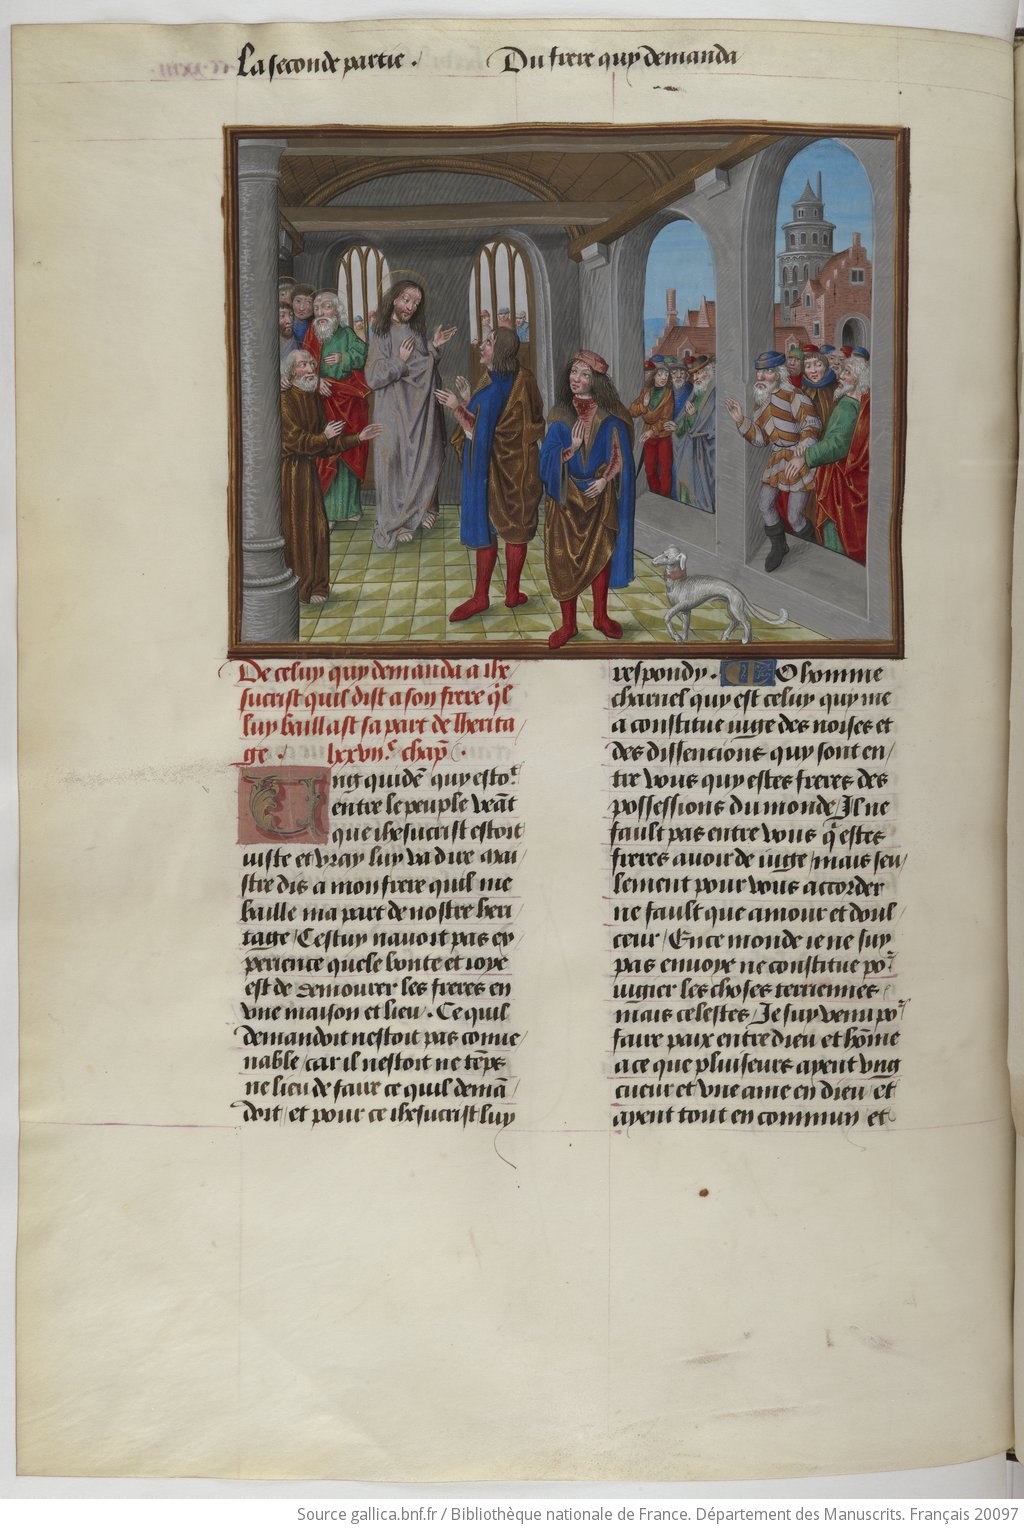 La seconde partie. Du frere quy demanda
De celuy quy demanda a ihe
sucrist quil dist a son frere ql̃
luy baillast sa part de lherita
ge. lxxvıı.e chap̃
Ung quidẽ quy estoᵗ
entre le peuple veãt
que ihesucrist estoit
iuste et vray luy va dire mai
stre dis a mon frere quil me
baille ma part de nostre heri
tage / Cestuy navoit pas ex
perience quele bonte et ioye
est de demourer les freres en
vne maison et lieu. Ce quil
demandoit nestoit pas conue
nable / car il nestoit ne tẽps
ne lieu de faire ce quil demã
doit / et pour ce ihesucrist luy
respondy. O homme
charnel quy est celuy quy me
a constitue iuge des noises et
des dissencions quy sont en
tre vous quy estes freres des
possessions du monde / Il ne
fault pas entre vous q̃ estes
freres avoir de iuge / mais seu
lement pour vous accorder
ne fault que amour et doul
ceur / En ce monde ie ne suy
pas envoye ne constitue poʳ
iugier les choses terriennes
mais celestes / Je suy venu poʳ
faire paix entre dieu et hõme
a ce que pluiseurs ayent vng
cueur et vne ame en dieu / et
ayent tout en commun et
Source gallica.bnf.fr / Bibliothèque nationale de France. Département des Manuscrits. Français 20097